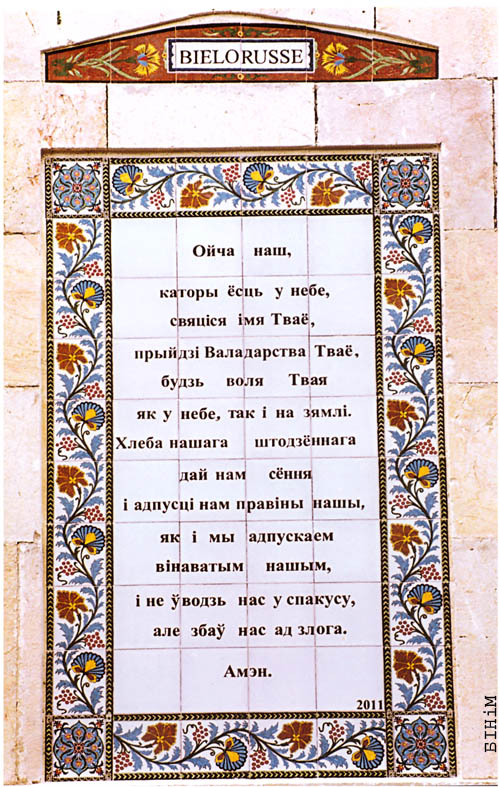 BIELORUSSE
Ойча наш,
каторы ёсць у небе,
свяціся імя Тваё,
прыйдзі Валадарства Тваё,
будзь воля Твая
як у небе, так і на зямлі.
Хлеба нашага штодзённага
дай нам сёння
і адпусці нам правіны нашы,
як і мы адпускаем
вінаватым нашым,
і не ўводзь нас у спакусу,
але збаў нас ад злога.
Амэн.
2011
БІНіМ